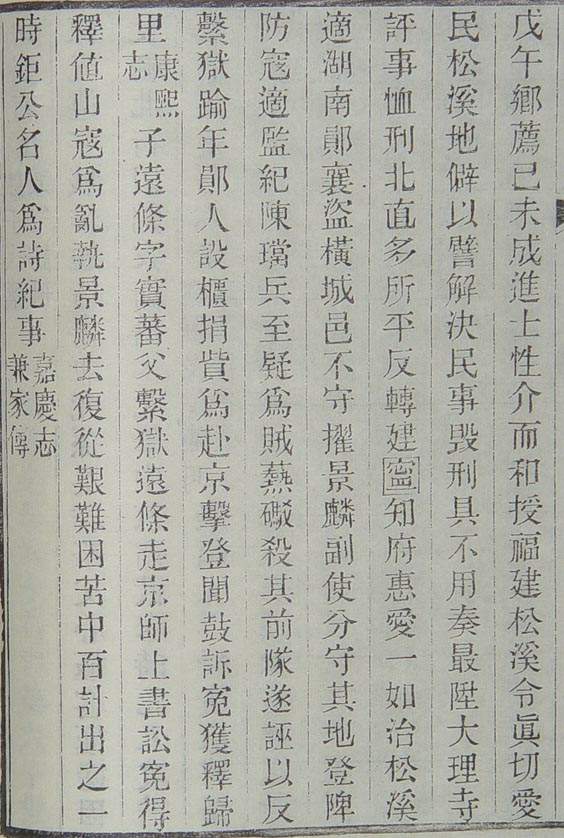 戊午鄉薦己未成進士性介而和授福建松溪令眞切愛
民松溪地僻以譬解決民事毀刑具不用奏最陞大理寺
評事恤刑北直多所平反轉建寍知府惠愛一如治松溪
適湖南鄖襄盜橫城邑不守擢景麟副使分守其地登陴
防寇適監紀陳璫兵至疑爲賊爇礮殺其前隊遂誣以反
繫獄踰年鄖人設櫃捐貲爲赴京擊登聞鼓訴冤獲釋歸
里康熙志子遠條字實蕃父繫獄遠條走京師上書訟冤得
釋値山寇爲亂執景麟去復從艱難困苦中百計出之一
時鉅公名人爲詩紀事嘉慶志兼家傳